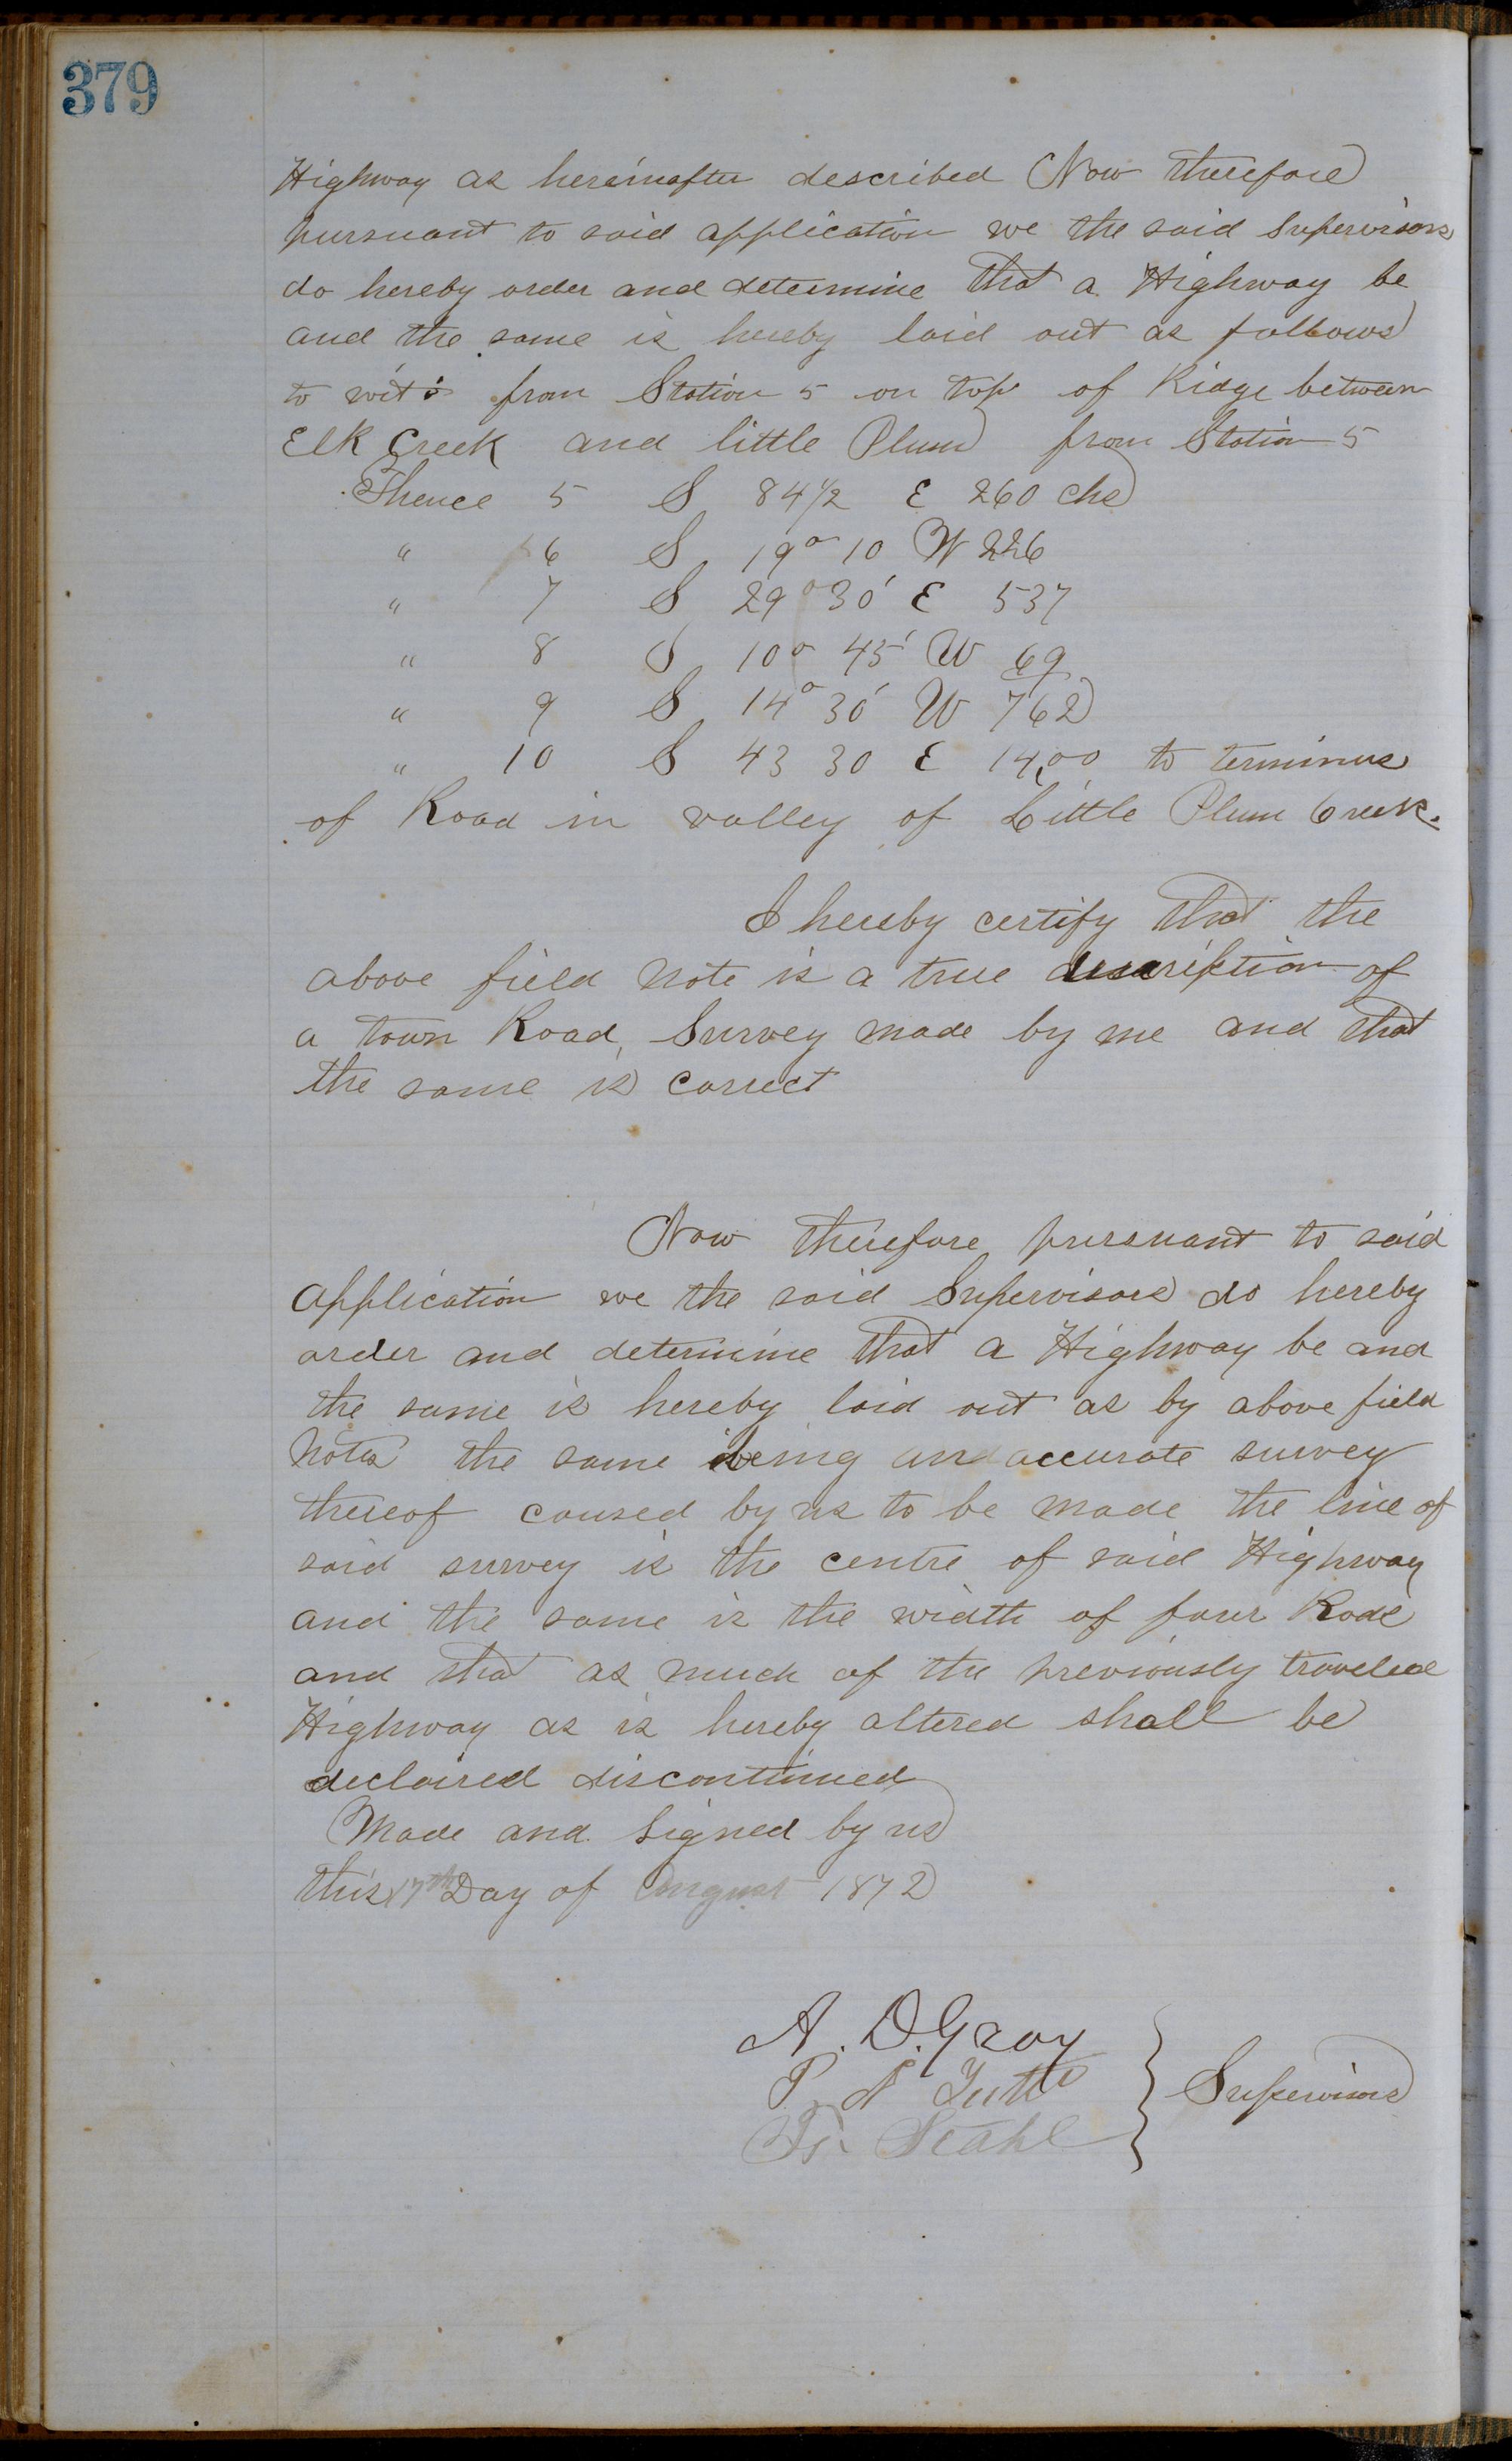 379
Highway as hereinafter described Now therefore
pursuant to said application we the said Supervisors
do hereby order and determine that a Highway be
and the same is hereby laid out as follows
to wit: from Station 5 on top of Ridge between
Elk Creek and little Plum from Station 5
Thence 5 S 84 1/2 E 260 chs
" 6 S 19° 10 W 226
" 7 S 29° 30' E 537
" 8 S 10° 45' W 69
" 9 S 14° 30' W 762
" 10 S 43 30 E 14,00 to terminus
of Road in valley of Little Plum Creek.
I hereby certify that the
above field note is a true description of
a town Road, Survey made by me and that
the same is correct
Now therefore pursuant to said
application we the said Supervisors do hereby
order and determine that a Highway be and
the same is hereby laid out as by above field
Notes the same being an accurate survey
thereof caused by us to be made the line of
said survey is the centre of said Highway
and the same is the width of four Rods
and that as much of the previously traveled
Highway as is hereby altered shall be
declaired discontinued
Made and Signed by us
this 17th Day of August 1872
A. D. Gray
P.
Stahl
Supervisors